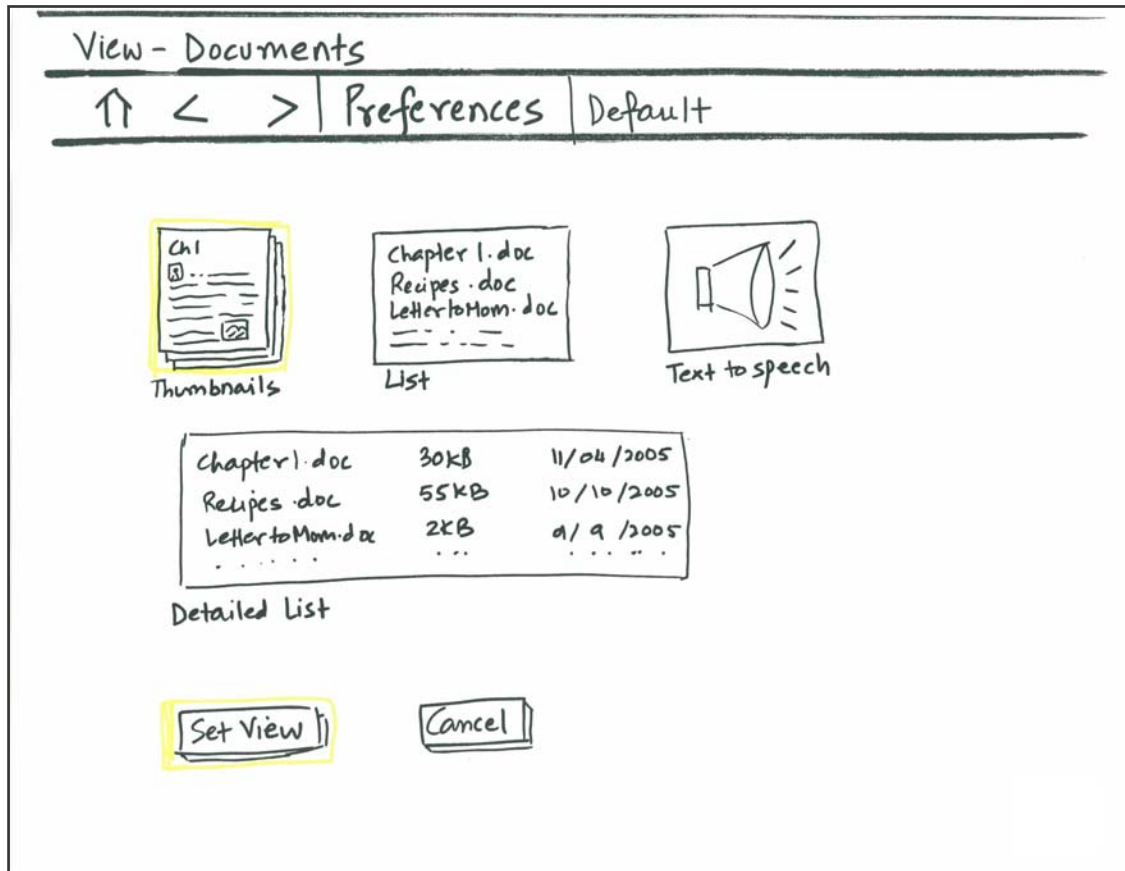 View - Documents
< > Preferences Default
Ch1
Chapter 1.doc
Recipes.doc
LettertoMom.doc
Thumbnails
List
Text to speech
Chapter1.doc 30KB 11/04/2005
Recipes.doc 55KB 10/10/2005
LettertoMom.doc 2KB 9/9/2005
Detailed List
Set View
Cancel